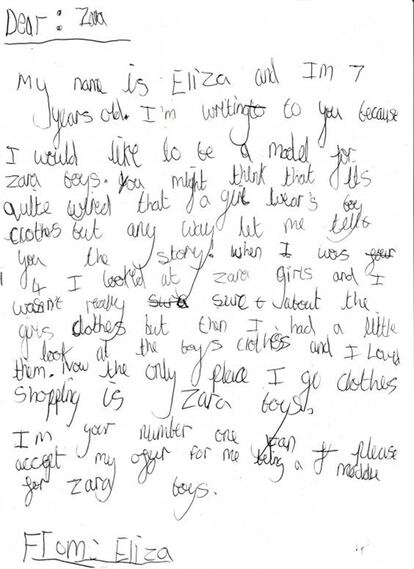 Dear: Zara
My name is Eliza and Im 7
years old. I'm writing to you because
I would like to be a model for
zara boys. You might think that its
quite wired that a girl wear's boy
clothes but any way let me tells
you the story! when I was your
4 I looked at zara girls and I
wasn't really sure sure about the
girls clothes but then I had a little
look at the boys clothes and I Loved
them. Now the only place I go clothes
shopping is Zara boys.
I'm your number one fan please
accept my offer for me being a moddle
for Zara boys.
From: Eliza